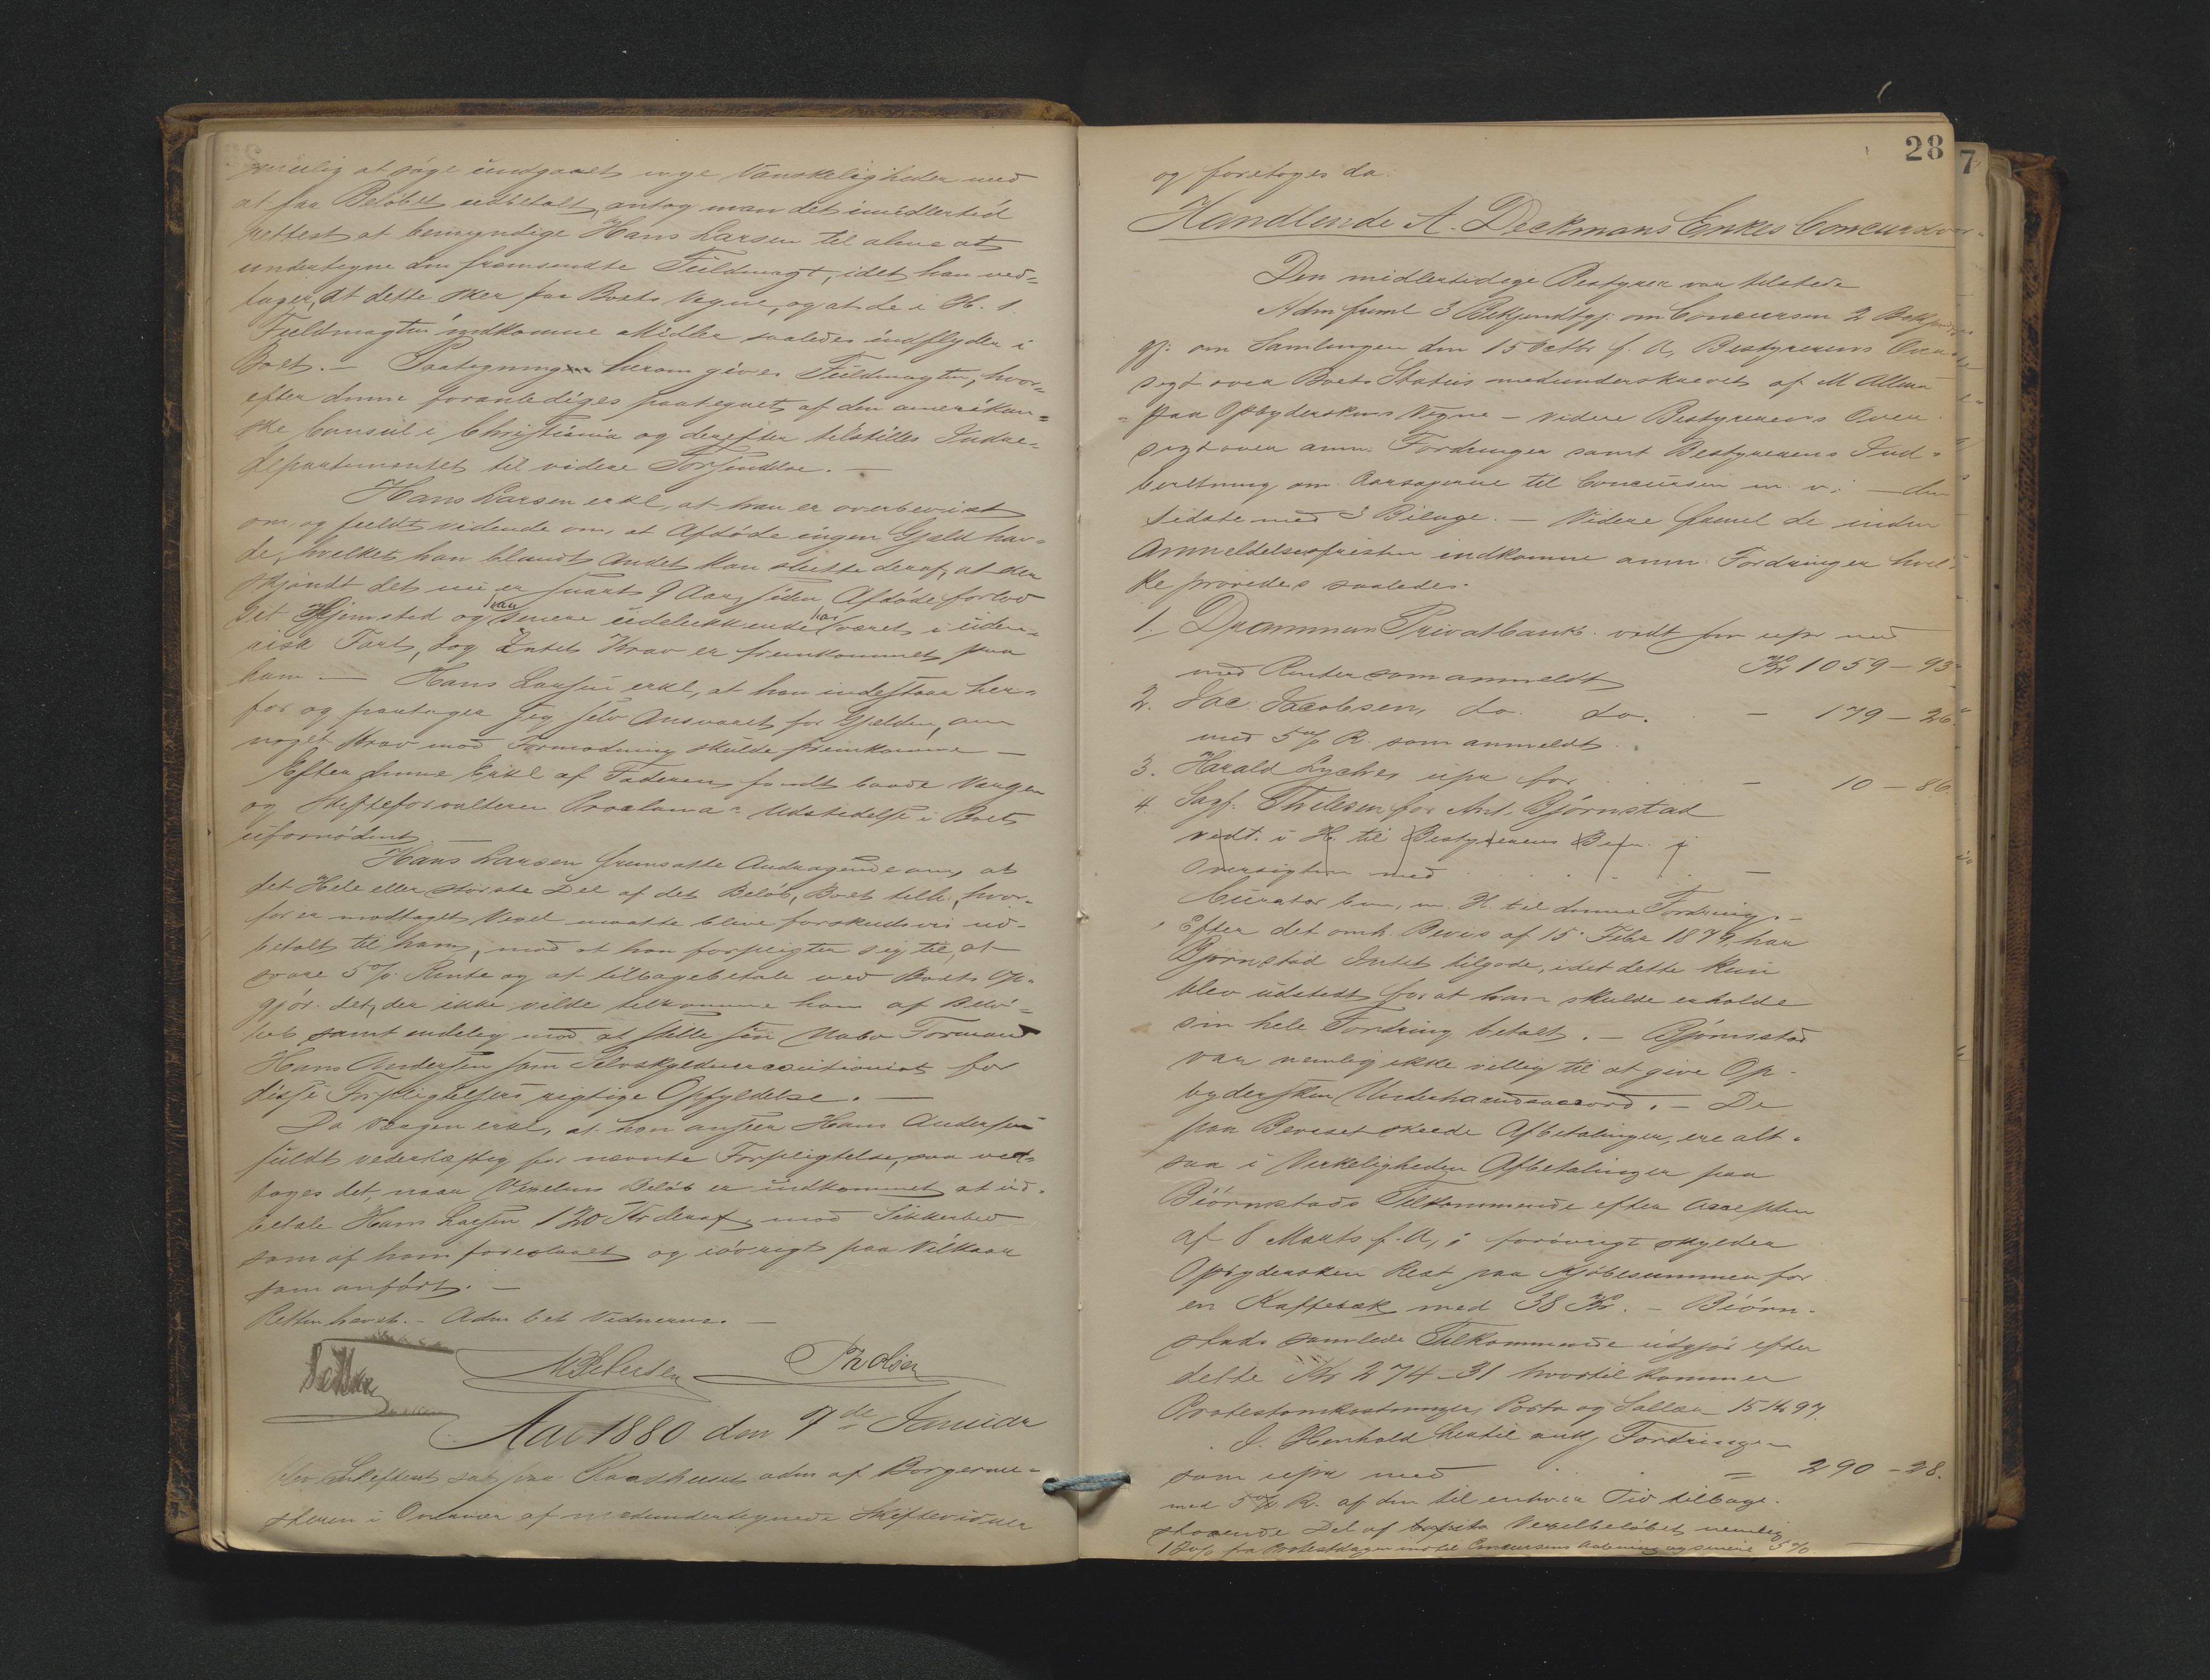 nemlig at søge undgaaet nye Vanskeligheder med
at faa Beløbet udbetalt, antog man det imidlertid
rettest at bemyndige Hans Larsen til alene at
undertegne den fremsendte Fuldmagt, idet han ved-
tager, at dette sker paa Boets Vegne, og at de i H. t.
Fuldmagten indkomne Midler saaledes indflyder i
Boet. – Paategning herom gives Fuldmagten, hvor-
efter denne foranlediges paategnet af den amerikan-
ske Consul i Christiania og derefter tilstilles Indre-
departementet til videre Forsendelse. –
Hans Larsen erkl, at han er overbevist
om, og fuldt vidende om, at Afdøde ingen Gjæld hav-
de, hvilket han blandt Andet kan slutte deraf, at der
skjøndt det nu er snart 9 Aar siden Afdøde forlod
sit Hjemsted og han senere udelukkende har været i uden-
risk Fart, dog Intet Krav er fremkommet paa
ham – Hans Larsen erkl, at han indestaar her-
for og paatager sig selv Ansvaret for Gjælden, om
noget Krav mod Formodning skulde fremkomme –
Efter denne Erkl af Faderen fandt baade Værgen
og Skifteforvalteren Proclamas Udstedelse i Boet
ufornødent
Hans Larsen fremsatte Andragende om, at
det Hele eller største Del af det Beløb, Boet tilk., hvor-
for er modtaget Vexel maatte blive forskudsvis ud-
betalt til ham, mod at han forpligter sig til, at
svare 5 % Rente og at tilbagebetale ved Boets Op-
gjør det, der ikke vilde tilkomme ham af Belø-
bet samt endelig mod at stille sin Nabo Formand
Hans Andersen som Selvskyldnercautionist for
disse Forpligtelsers rigtige Opfyldelse. –
Da Værgen erkl, at han anseer Hans Andersen
fuldt vederhæftig for nævnte Forpligtelse, saa ved-
toges det, naar Vexelens Beløb er indkommet at ud-
betale Hans Larsen 120 Kr deraf mod Sikkerhed
som af ham foreslaaet og iøvrigt paa Vilkaar
som anført. –
Retten hævet. – Adm bet Vidnerne. –
Aar 1880 den 7de Januar
blev Skifteret sat paa Raadhuset adm af Borgerme-
steren i Overvær af medundertegnede Skiftevidner
28
7
og foretoges da:
Handlende A. Deckmans Enkes Concursbo
Den midlertidige Bestyrer var tilstede
Adm freml 3 Bekjendtgj: om Concursen 2 Bekjendt
gj: om Samlingen den 15 Octbr f. A, Bestyrerens Over
sigt over Boets Status medunderskrevet af M
paa Opbyderskens Vegne – videre Bestyrerens Over
sigt over anm. Fordringer samt Bestyrerens Ind-
beretning om Aarsagerne til Concursen m. v; – den
sidste med 3 Bilage. – Videre freml de inden
Anmeldelsesfristen indkomne anm. Fordringer hvil-
ke prøvedes saaledes.
1. Drammens Privatbank. vedt for upr med
med Renter som anmeldt Kr 1059 – 93
2. Jac. Jacobsen, do. do. – 179 – 26.
med 5 % R. som anmeldt.
3. Harald Lyches upr for – 10 – 86.
4. Sagf. Thilesen for Ant. Bjørnstad
vedt. i H. til Bestyrerens Bem. i
Oversigten med . . . . –
Curator bem, m. H. til denne Fordring. –
Efter det omh. Bevis af 15 Febr 1879, har
Bjørnstad Intet tilgode, idet dette kun
blev udstedt for at han skulde erholde
sin hele Fordring betalt. – Bjørnstad
var nemlig ikke villig til at give Op-
bydersken Underhaandsaccord. – De
paa Beviset skeede Afbetalinger, ere alt-
saa i Virkeligheden Afbetalinger paa
Bjørnstads Tilkommende efter Accepten
af 8 Marts f. A, i forøvrigt skylder
Opbydersken Rest paa Kjøbesummen for
en Kaffesæk med 38 Kr. – Bjørn-
stads samlede Tilkommende udgjør efter
dette Kr 274 – 31 hvortil kommer
Protestomkostninger, Porto og Sallær 15 Kr 97.
I Henhold hertil ank Fordringen
som upr med . . . . = 290 – 28.
med 5 % R. af den til enhver Tid tilbage-
staaende Del af Vexelbeløbet nemlig
fra Protestdagen indtil Concursens Aabning og senere 5 %